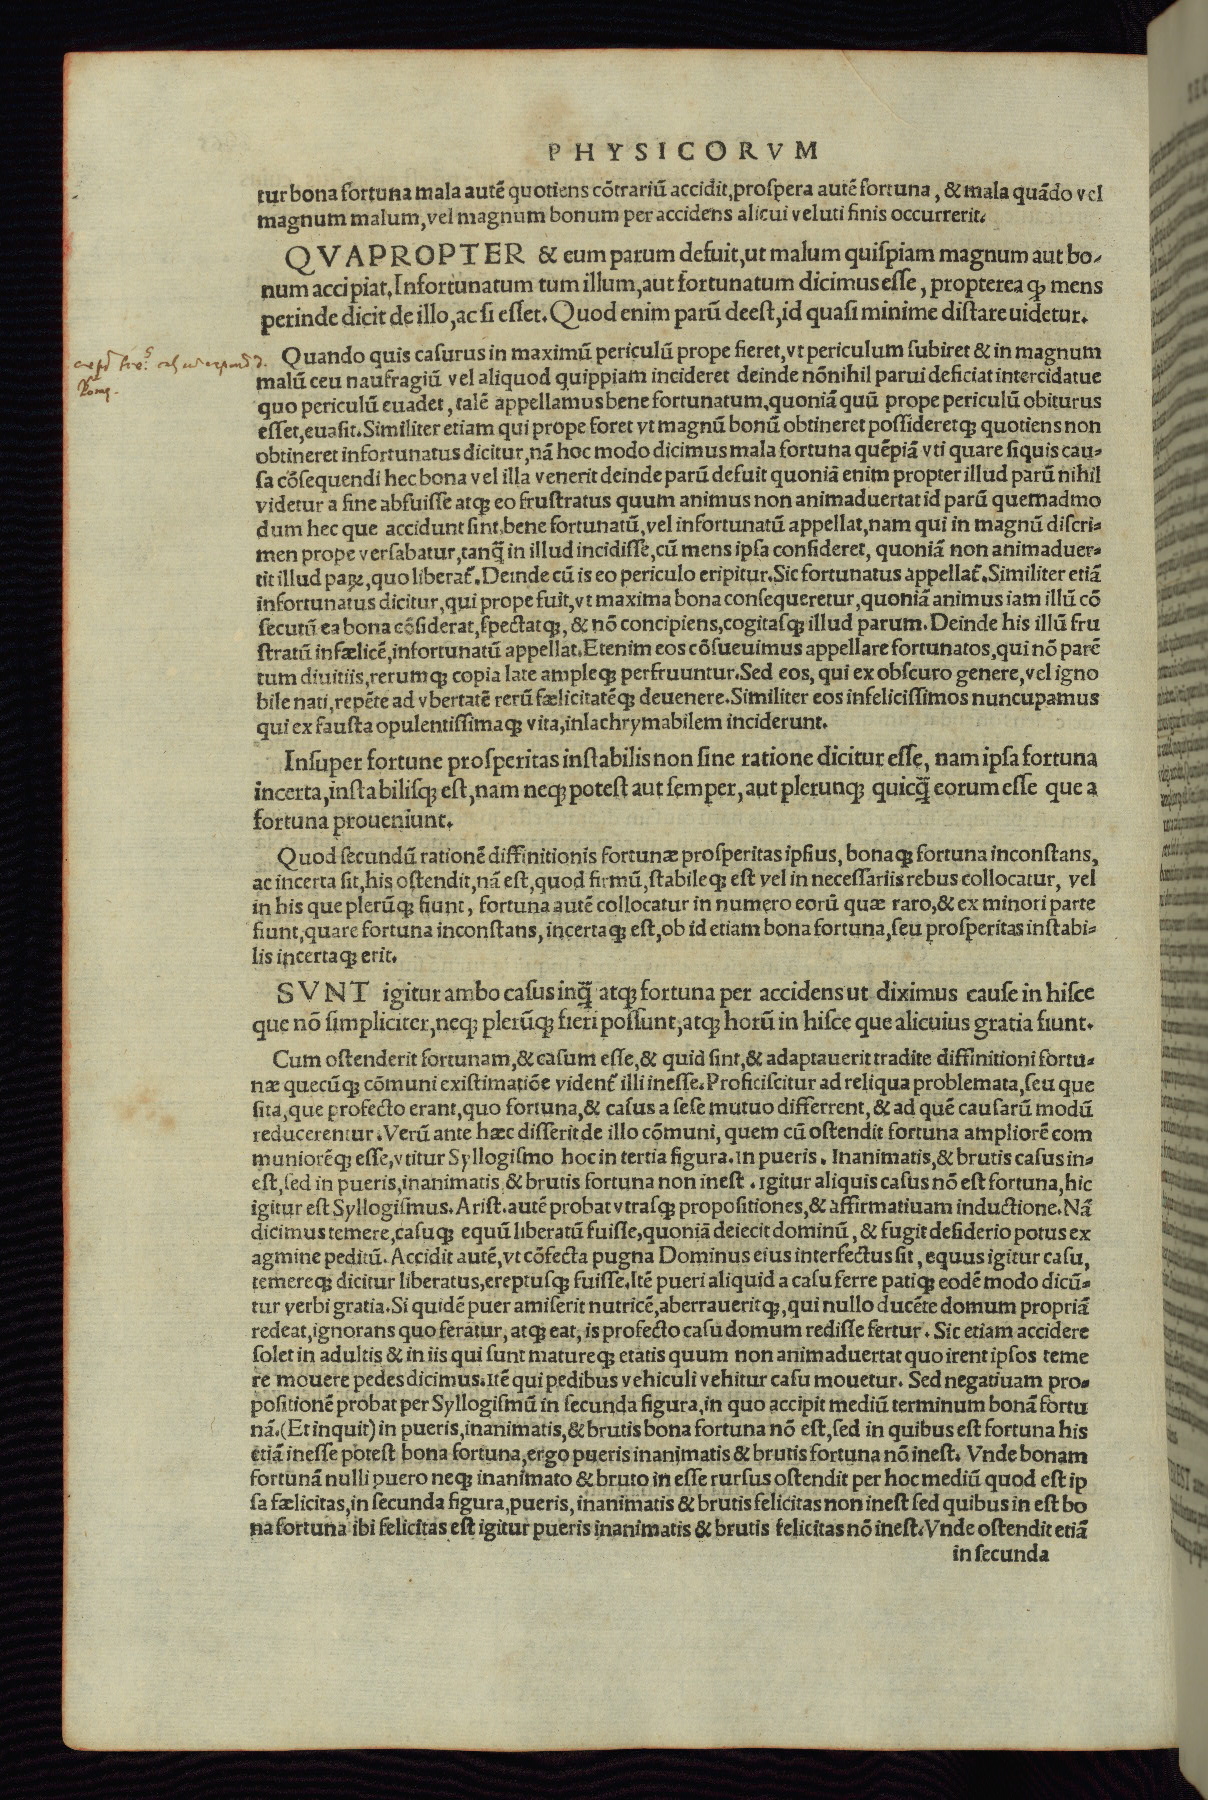 PHYSICORVM
tur bona fortuna mala autē quotiens cōtrariū accidit, prospera autē fortuna, & mala quādo vel
magnum malum, vel magnum bonum per accidens alicui veluti finis occurrerit.
QVAPROPTER & cum parum defuit, ut malum quispiam magnum aut bo-
num accipiat. Infortunatum tum illum, aut fortunatum dicimus esse, propterea ꝙ mens
perinde dicit de illo, ac si esset. Quod enim parū deest, id quasi minime distare uidetur.
Quando quis casurus in maximū periculū prope fieret, vt periculum subiret & in magnum
malū ceu naufragiū vel aliquod quippiam incideret deinde nōnihil parui deficiat intercidatue
quo periculū euadet, talē appellamus bene fortunatum, quoniā quū prope periculū obiturus
esset, euasit. Similiter etiam qui prope foret vt magnū bonū obtineret possideretqꝫ quotiens non
obtineret infortunatus dicitur, nā hoc modo dicimus mala fortuna quēpiā vti quare siquis cau-
sa cōsequendi hec bona vel illa venerit deinde parū defuit quoniā enim propter illud parū nihil
videtur a fine abfuisse atqꝫ eo frustratus quum animus non animaduertat id parū quemadmo
dum hec que accidunt sint, bene fortunatū, vel infortunatū appellat, nam qui in magnū discri-
men prope versabatur, tanq̄ in illud incidisse, cū mens ipsa consideret, quoniā non animaduer-
tit illud paꝝ, quo liberat̄. Deinde cū is eo periculo eripitur. Sic fortunatus appellat̄. Similiter etiā
infortunatus dicitur, qui prope fuit, vt maxima bona consequeretur, quoniā animus iam illū cō
secutū ea bona cōsiderat, spectatqꝫ, & nō concipiens, cogitasqꝫ illud parum. Deinde his illū fru
stratū infælicē, infortunatū appellat. Etenim eos cōsueuimus appellare fortunatos, qui nō parē
tum diuitiis, rerumqꝫ copia late ampleqꝫ perfruuntur. Sed eos, qui ex obscuro genere, vel igno
bile nati, repēte ad vbertatē rerū fælicitatēqꝫ deuenere. Similiter eos infelicissimos nuncupamus
qui ex fausta opulentissimaqꝫ vita, inlachrymabilem inciderunt.
Insuper fortune prosperitas instabilis non sine ratione dicitur esse, nam ipsa fortuna
incerta, instabilisqꝫ est, nam neqꝫ potest aut semper, aut plerunqꝫ quicq̄ eorum esse que a
fortuna proueniunt.
Quod secundū rationē diffinitionis fortunæ prosperitas ipsius, bonaqꝫ fortuna inconstans,
ac incerta sit, his ostendit, nā est, quod firmū, stabileqꝫ est vel in necessariis rebus collocatur, vel
in his que plerūqꝫ fiunt, fortuna autē collocatur in numero eorū quæ raro, & ex minori parte
fiunt, quare fortuna inconstans, incertaqꝫ est, ob id etiam bona fortuna, seu prosperitas instabi-
lis incertaqꝫ erit.
SVNT igitur ambo casus inq̄ atqꝫ fortuna per accidens ut diximus cause in hisce
que nō simpliciter, neqꝫ plerūqꝫ fieri possunt, atqꝫ horū in hisce que alicuius gratia fiunt.
Cum ostenderit fortunam, & casum esse, & quid sint, & adaptauerit tradite diffinitioni fortu-
næ quecūqꝫ cōmuni existimatiōe vident̄ illi inesse. Proficiscitur ad reliqua problemata, seu que
sita, que profecto erant, quo fortuna, & casus a sese mutuo differrent, & ad quē causarū modū
reducerentur. Verū ante hæc disserit de illo cōmuni, quem cū ostendit fortuna ampliorē com
muniorēqꝫ esse, vtitur Syllogismo hoc in tertia figura. in pueris. Inanimatis, & brutis casus in-
est, sed in pueris, inanimatis & brutis fortuna non inest. igitur aliquis casus nō est fortuna, hic
igitur est Syllogismus. Arist. autē probat vtrasqꝫ propositiones, & affirmatiuam inductione. Nā
dicimus temere, casuqꝫ equū liberatū fuisse, quoniā deiecit dominū, & fugit desiderio potus ex
agmine peditū. Accidit autē, vt cōfecta pugna Dominus eius interfectus sit, equus igitur casu,
temereqꝫ dicitur liberatus, ereptusqꝫ fuisse. Itē pueri aliquid a casu ferre patiqꝫ eodē modo dicū-
tur verbi gratia. Si quidē puer amiserit nutricē, aberraueritqꝫ, qui nullo ducēte domum propriā
redeat, ignorans quo feratur, atqꝫ eat, is profecto casu domum redisse fertur. Sic etiam accidere
solet in adultis & in iis qui sunt matureqꝫ etatis quum non animaduertat quo irent ipsos teme
re mouere pedes dicimus. Itē qui pedibus vehiculi vehitur casu mouetur. Sed negatiuam pro-
positionē probat per Syllogismū in secunda figura, in quo accipit mediū terminum bonā fortu
nā. (Et inquit) in pueris, inanimatis, & brutis bona fortuna nō est, sed in quibus est fortuna his
etiā inesse potest bona fortuna, ergo pueris inanimatis & brutis fortuna nō inest. Vnde bonam
fortunā nulli puero neqꝫ inanimato & bruto in esse rursus ostendit per hoc mediū quod est ip
sa fælicitas, in secunda figura, pueris, inanimatis & brutis felicitas non inest sed quibus in est bo
na fortuna ibi felicitas est igitur pueris inanimatis & brutis felicitas nō inest. Vnde ostendit etiā
in secunda